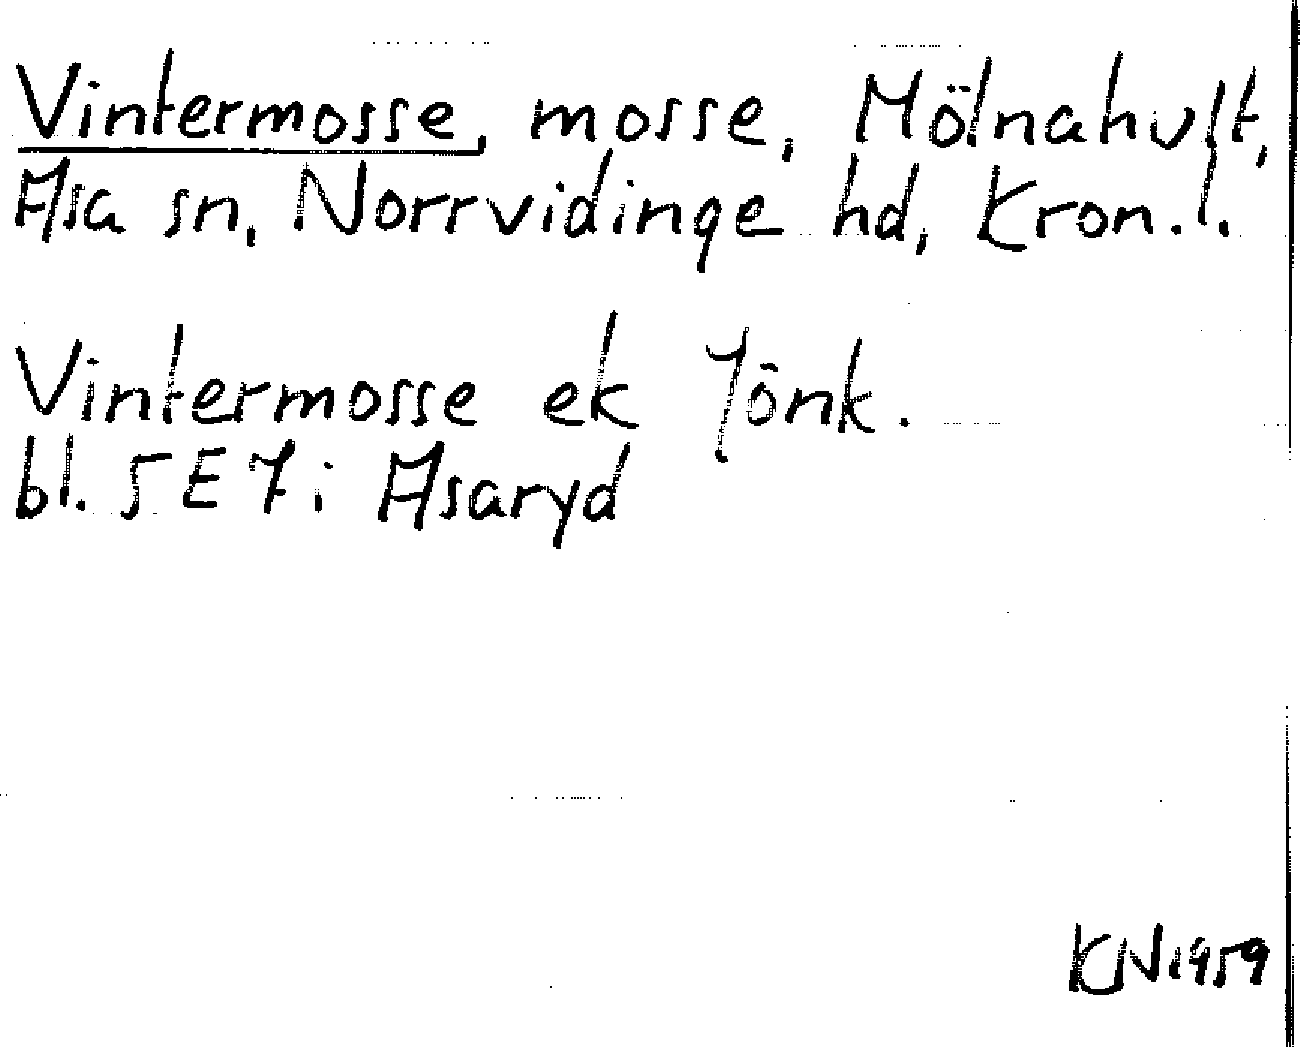 Vintermosse, mosse, Mölnahult,
Asa sn, Norrvidinge hd, Kron.l.
Vintermosse ek Jönk.
bl. 5 E 7 i Asaryd
KN 1959